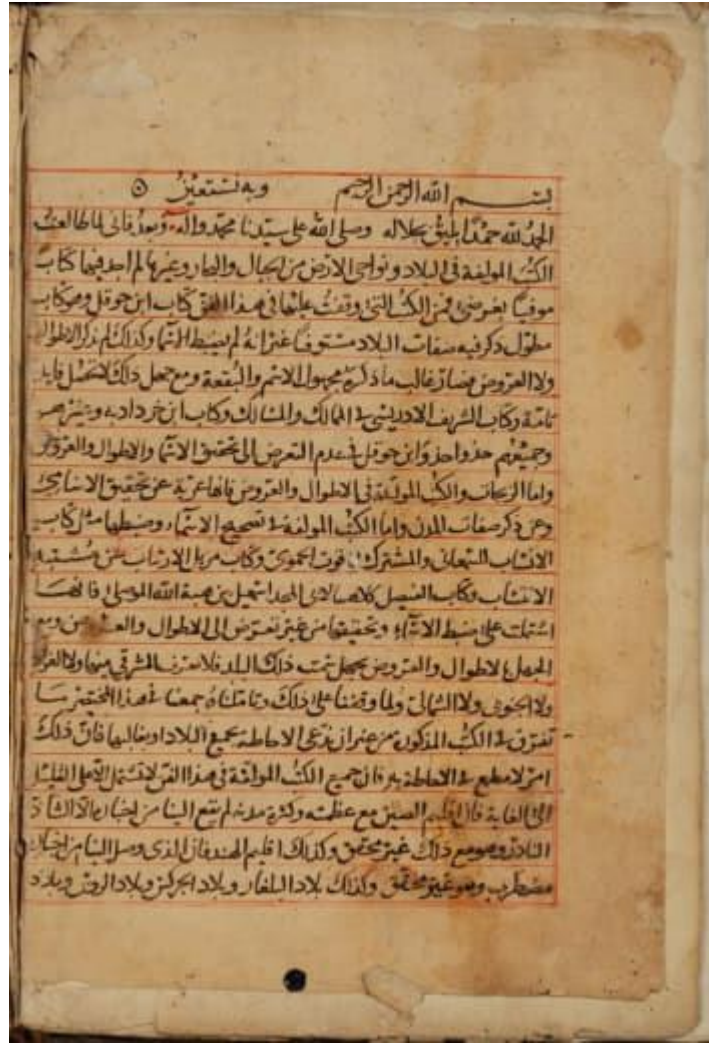 بسم الله الرحمن الرحيم وبه نستعين
الحمد لله حمدًا يليق بجلاله وصلى الله على سيدنا محمد واله وبعد فانى لما طالعت
الكتب المولفة فى البلاد ونواحى الارض من الجبال والبحار وغيرها لم اجد فيها كتابًا
موفيًا بغرضى فمن الكتب التى وقفت عليها فى هذا الفن كتاب ابن حوقل وهو كتاب
مطول ذكر فيه صفات البلاد مستوفيًا غير انه لم يضبط الاسما وكذلك لم يذكر الاطوال
ولا العروض فصار غالب ما ذكره مجهول الاسم والبقعة ومع جهل ذلك لا تحصل فايدة
تامة وكتاب الشريف الادريسى فى الممالك والمسالك وكتاب ابن خردادبه وغيرهم
وجميعهم حذوا حذو ابن حوقل فى عدم التعرض الى تحقيق الاسما والاطوال والعروض
واما الزيجات والكتب المولفة فى الاطوال والعروض فانها عرية عن تحقيق الاسامى
وعن ذكر صفات المدن واما الكتب المولفة فى تصحيح الاسماء وضبطها مثل كتاب
الانساب للسمعانى والمشترك لياقوت الحموى وكتاب مزيل الارتياب عن مشتبه
الانتساب وكتاب الفيصل كلاهما لابى المجد اسمعيل بن هبة الله الموصلى فانها
اشتملت على ضبط الاسماء وتحقيقها من غير تعرض الى الاطوال والعروض ومع
الجهل بالاطوال والعروض يجهل سمت ذلك البلد فلا يعرف الشرقى منها ولا الغربى
ولا الجنوبى ولا الشمالى ولما وقفنا على ذلك وتاملناه جمعنا فى هذا المختصر ما
تفرق فى الكتب المذكورة من غير ان ندعى الاحاطة بجميع البلاد او بغالبها فان ذلك
امر لا مطمع فى الاحاطة به فان جميع الكتب المولفة فى هذا الفن لا تشتمل الا على القليل
الى الغاية فان اقليم الصين مع عظمته وكثرة مدنه لم يقع الينا من اخباره الا الشاذ
النادر وهو مع ذلك غير محقق وكذلك اقليم الهند فان الذى وصل الينا من اخباره
مضطرب وهو غير محقق وكذلك بلاد البلغار وبلاد الجركس وبلاد الروس وبلاد